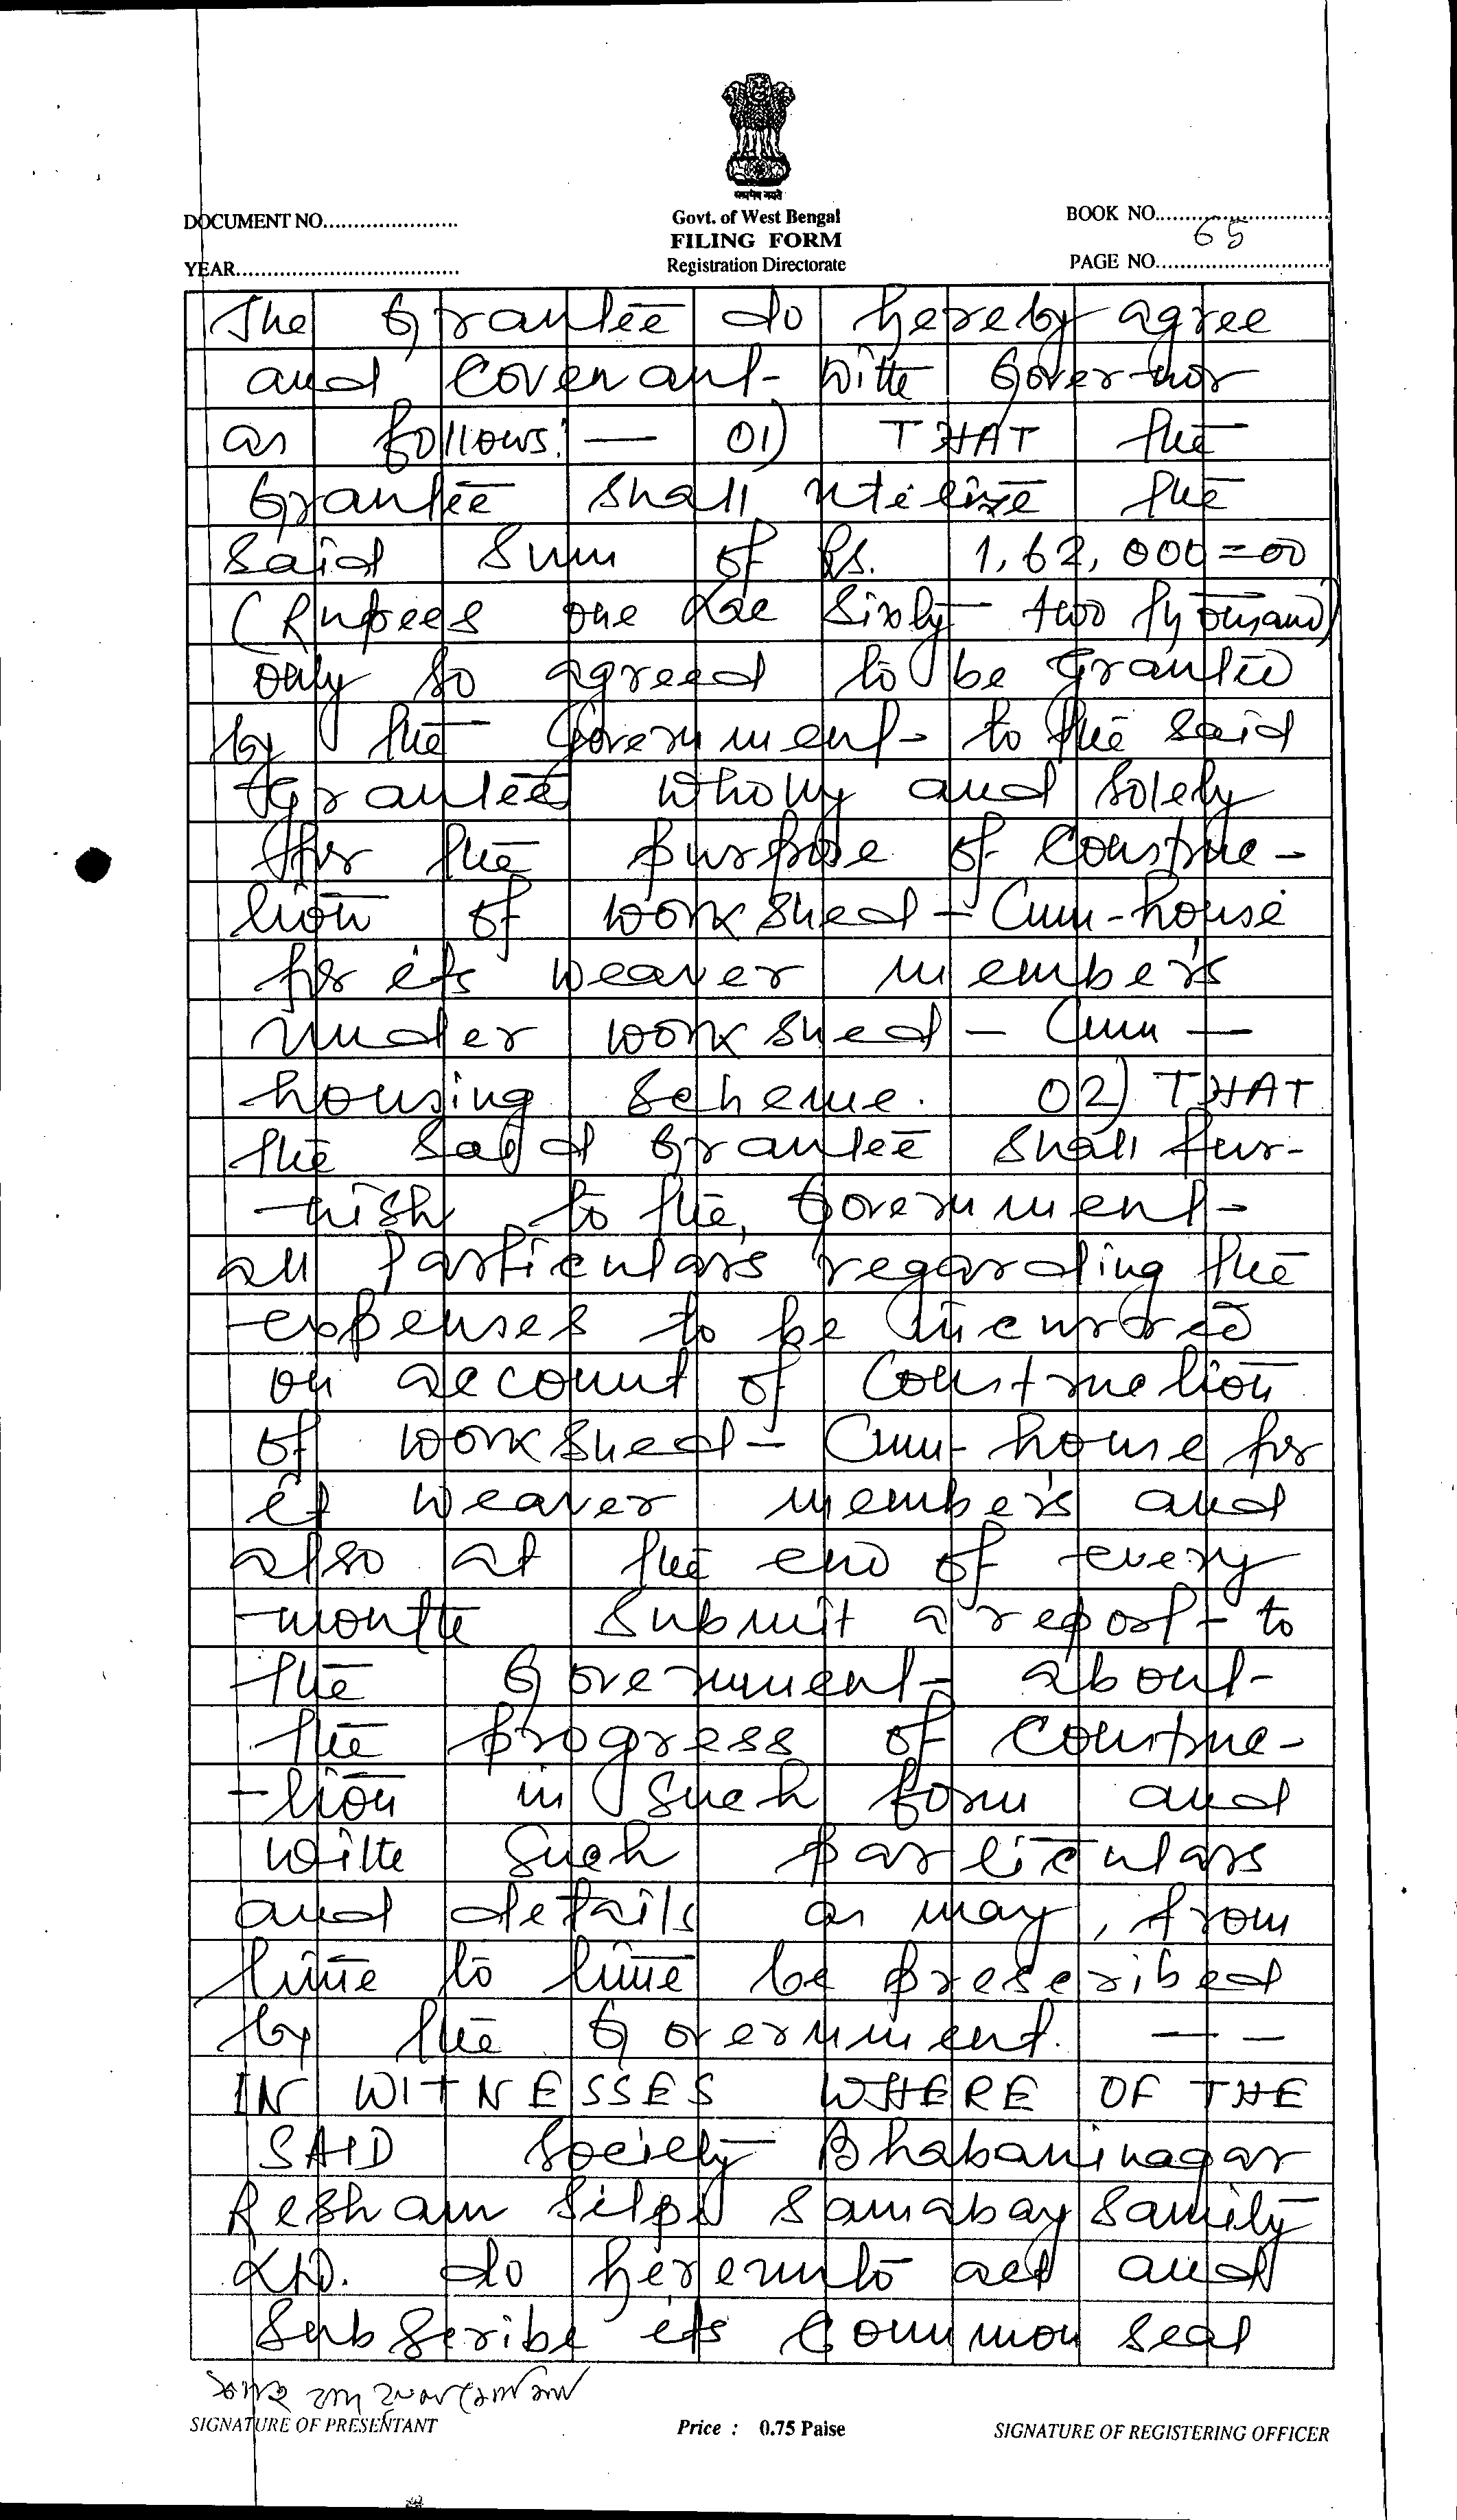 सत्यमेव जयते
DOCUMENT NO......................
Govt. of West Bengal
BOOK NO............................
FILING FORM
65
YEAR....................................
Registration Directorate
PAGE NO............................
The Grantee do hereby agree
and covenant with Governor
as follows:— 01) THAT the
Grantee shall utilize the
said sum of Rs. 1,62,000=00
(Rupees one Lac Sixty two thousand)
only so agreed to be granted
by the Government to the said
Grantee wholly and solely
for the purpose of construc-
tion of work shed - Cum-house
for its weaver members
under work shed - Cum -
housing Scheme. 02) THAT
the said Grantee shall fur-
-nish to the, Government
all particulars regarding the
expenses to be incurred
on account of construction
of work shed - Cum- house for
it weaver members and
also at the end of every
month submit a report to
the Government about
the progress of construc-
-tion in such form and
with such particulars
and details as may, from
time to time be prescribed
by the Government. — —
IN WITNESSES WHERE OF THE
SAID Society Bhabaninagar
Resham Silpi Samabay Samity
Ltd. do hereunto act and
Subscribe its Common seal
SIGNATURE OF PRESENTANT
Price : 0.75 Paise
SIGNATURE OF REGISTERING OFFICER